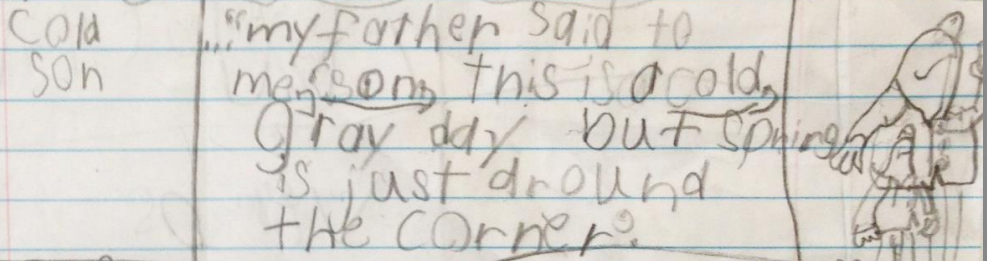 Cold
Son
..."my father said to
me, "son, this is a cold,
Gray day but spring
is just around
the corner".